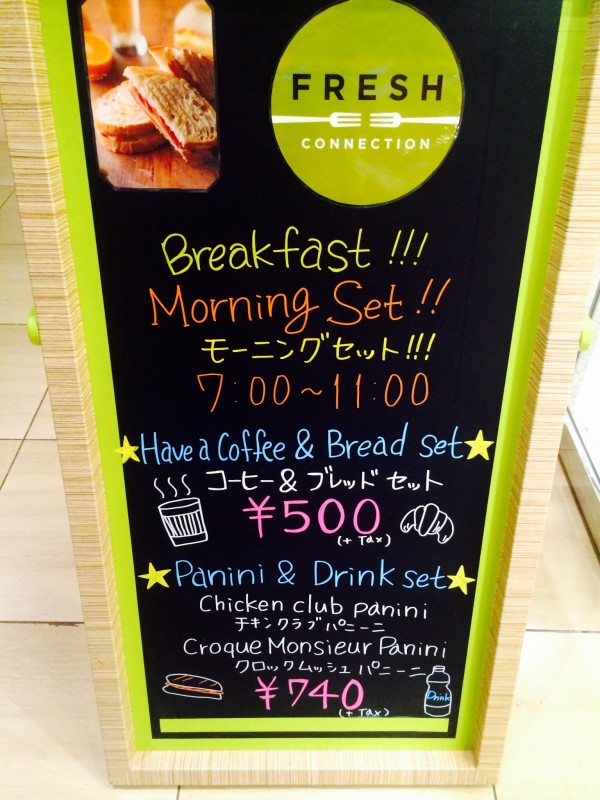 FRESH
CONNECTION
Breakfast !!!
Morning Set !!
モーニングセット!!!
7:00～11:00
Have a Coffee & Bread set
コーヒー & ブレッド セット
¥500
(+ Tax)
Panini & Drink set
Chicken club panini
チキンクラブパニーニ
Croque Monsieur Panini
クロックムッシュ パニーニ
Drink
¥740
(+ Tax)